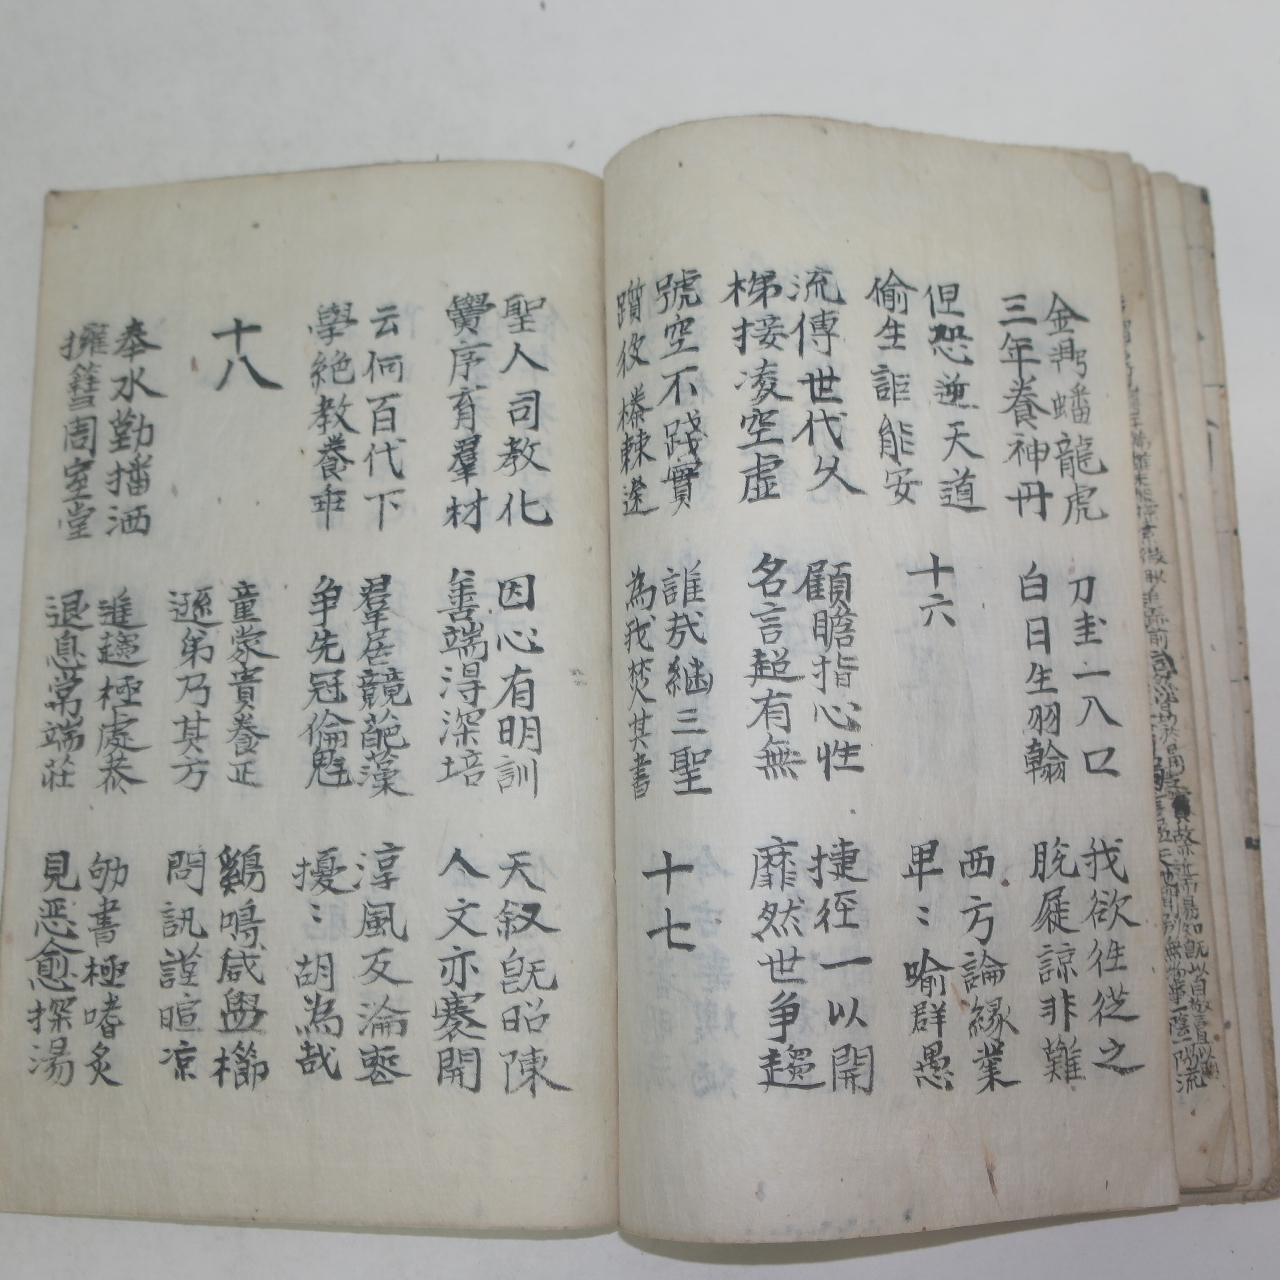 金鼎蟠龍虎
三年養神丹
刀圭一八口
白日生羽翰
我欲往從之
脫屣諒非難
但恐逆天道
偷生詎能安
十六
西方論緣業
卑〻喻群愚
流傳世代久
梯接凌空虛
顧瞻指心性
名言超有無
捷徑一以開
靡然世爭趨
號空不踐實
躓彼榛棘途
誰哉繼三聖
為我焚其書
十七
聖人司教化
黌序育羣材
因心有明訓
善端得深培
天叙旣昭陳
人文亦褰開
云何百代下
學絶教養乖
羣居競葩藻
爭先冠倫魁
淳風反淪喪
擾〻胡為哉
十八
童蒙貴養正
遜弟乃其方
鷄鳴咸盥櫛
問訊謹暄凉
奉水勤播洒
擁篲周室堂
進趨極虔恭
退息常端莊
劬書極嗜炙
見惡愈探湯